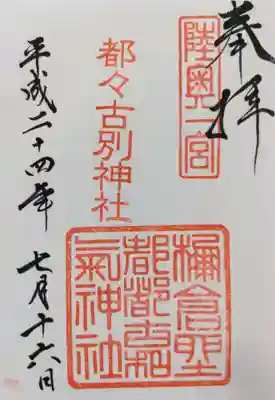 奉拝
陸奥一宮
都々古別神社
棚倉
都都古和
氣神社
平成二十四年 七月十六日